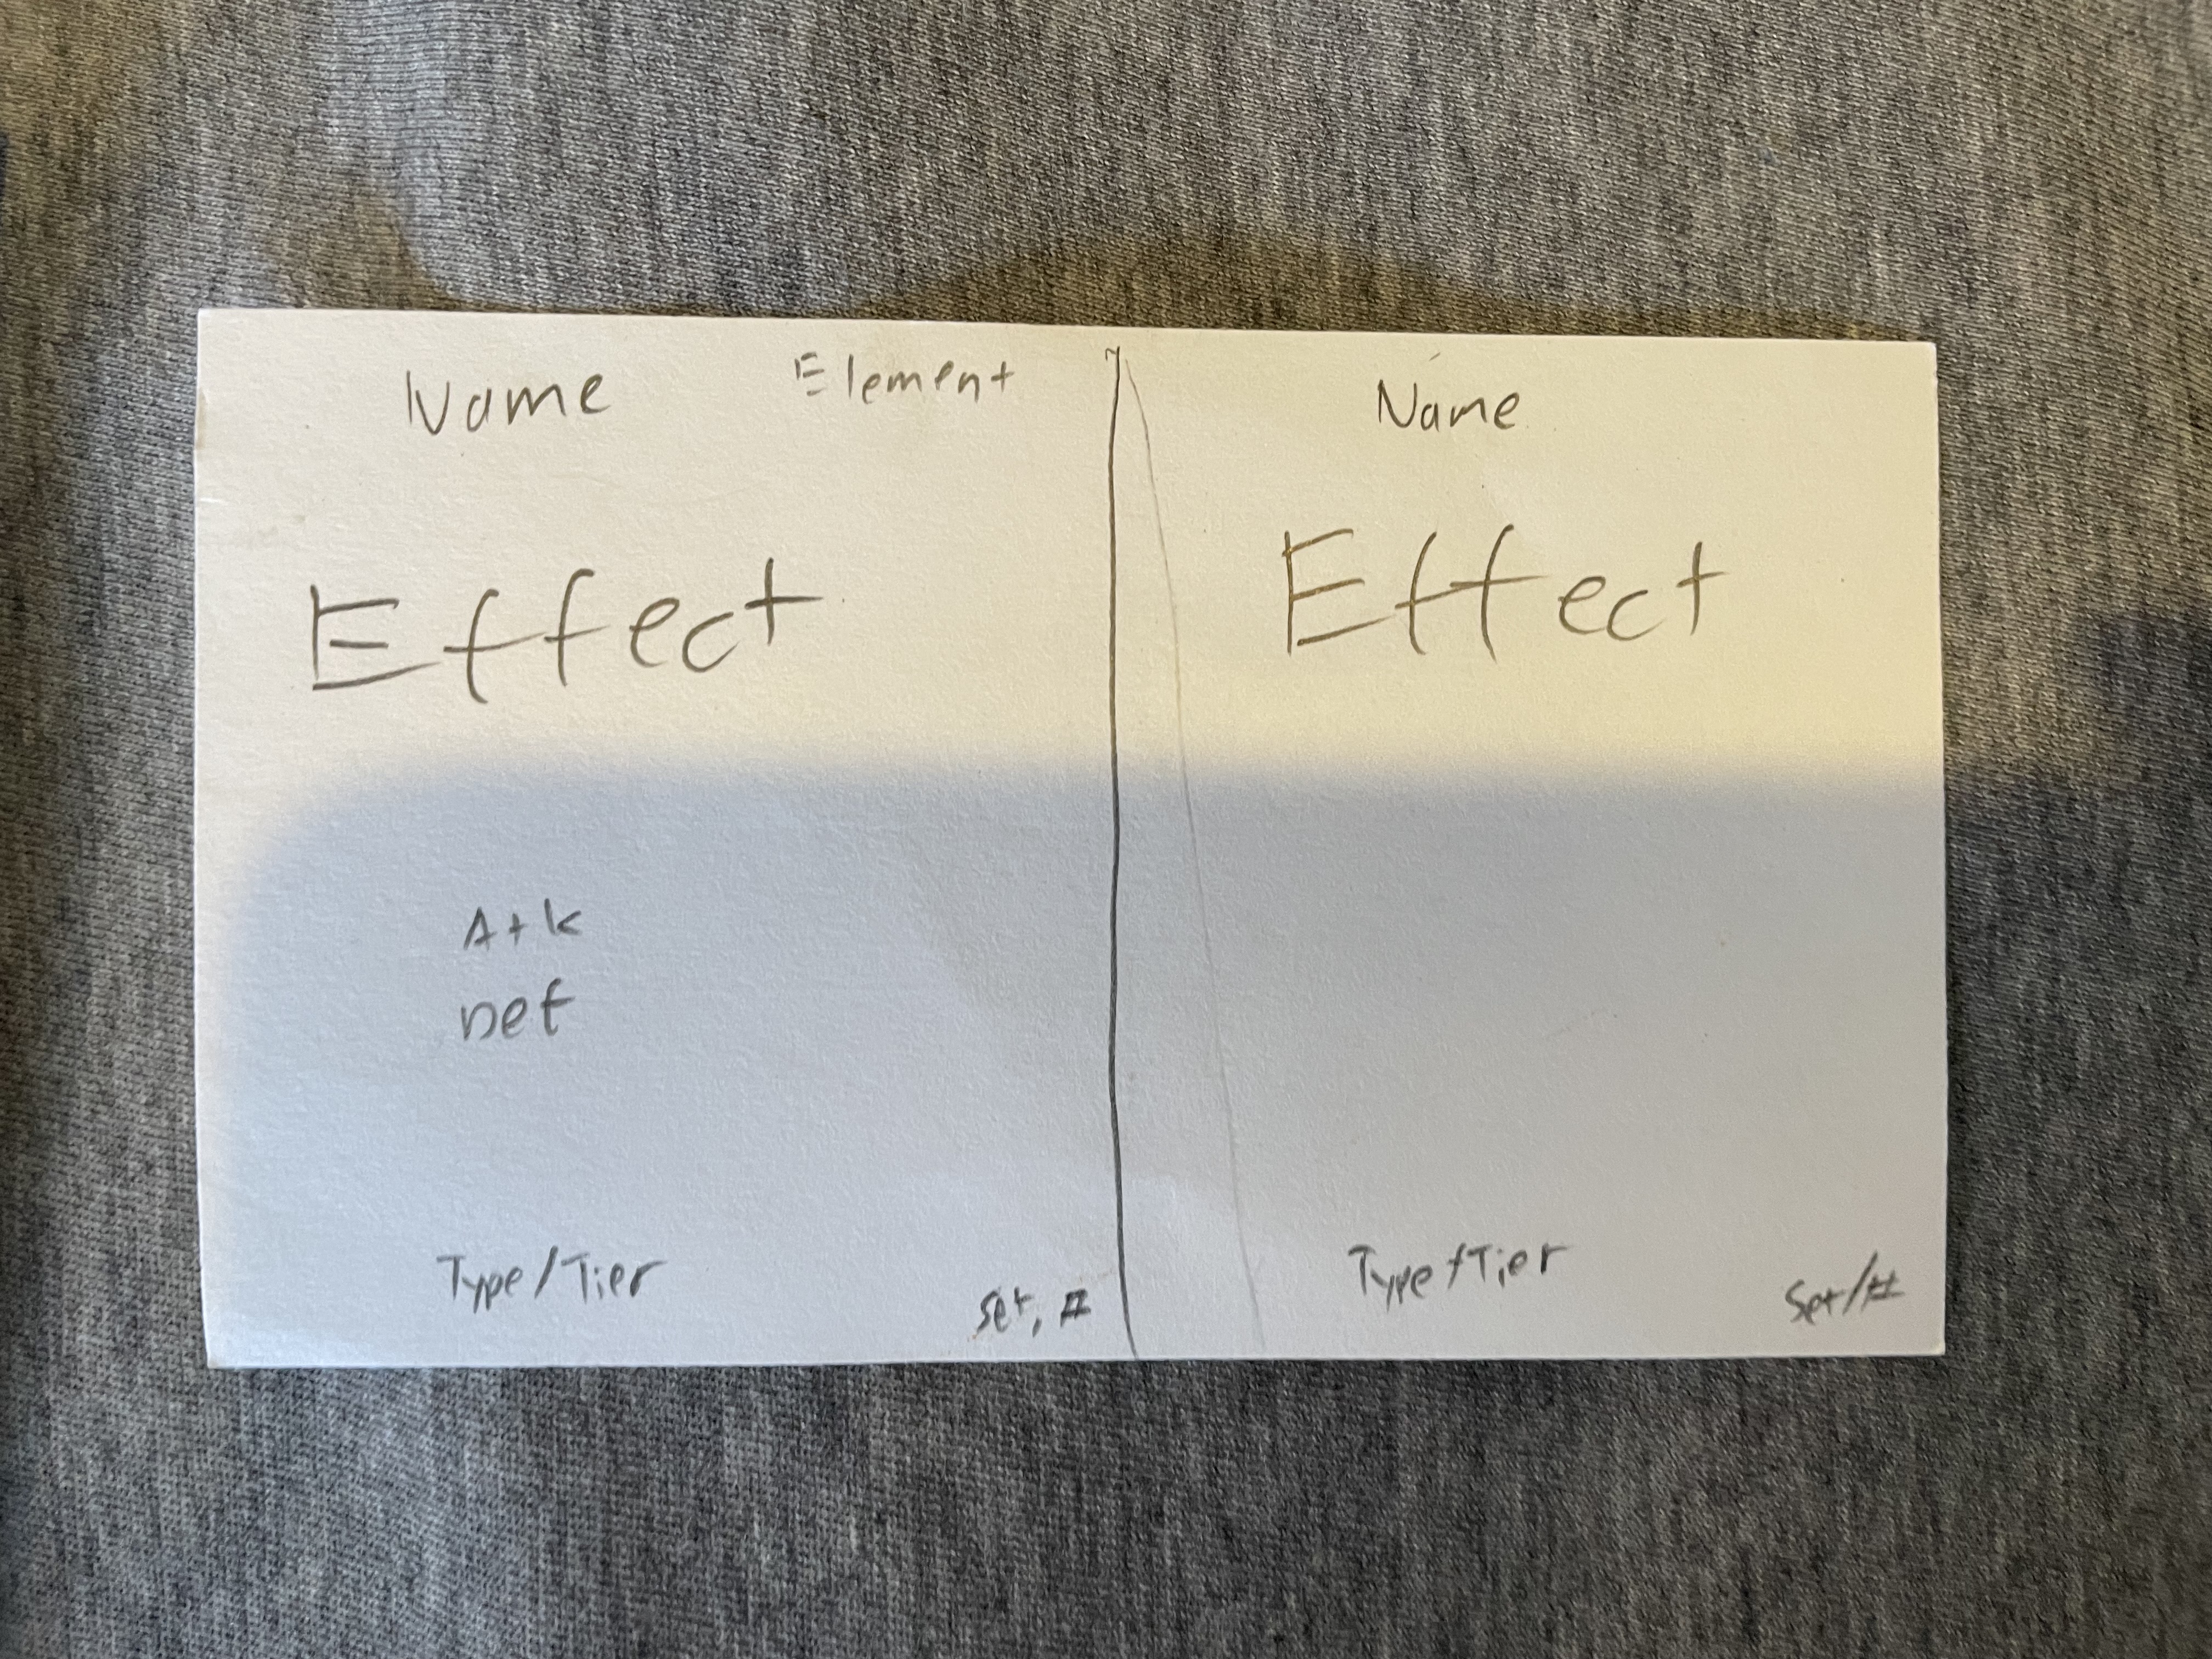 Name
Element
Effect
Atk
Def
Type/Tier
Set, #
Name
Effect
Type/Tier
Set/#